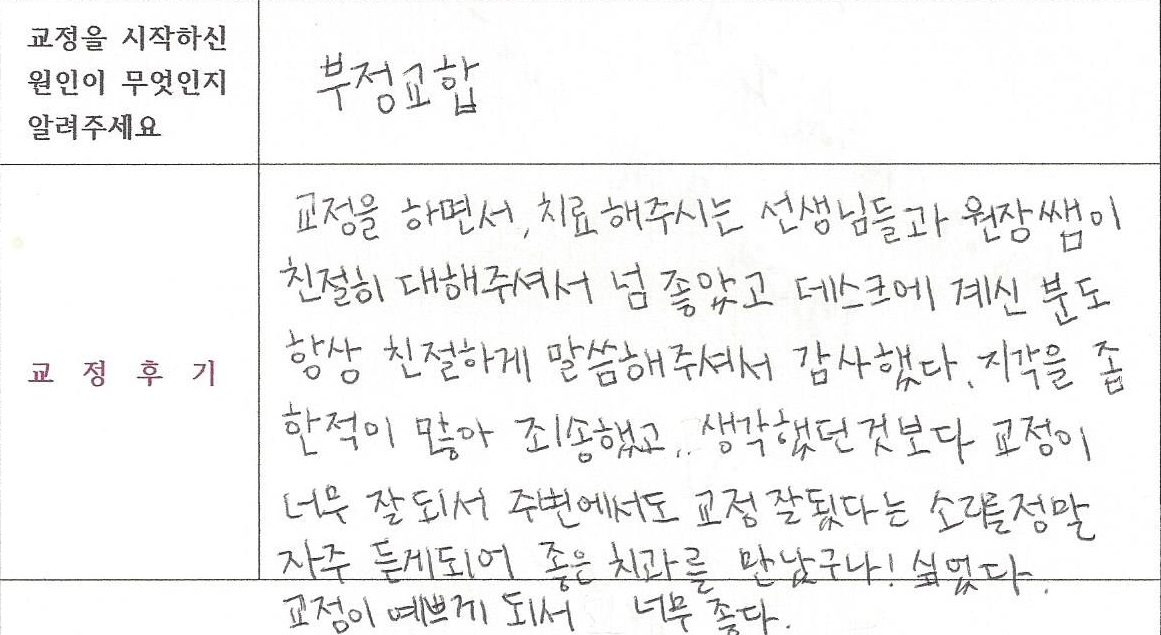 교정을 시작하신
원인이 무엇인지
알려주세요
부정교합
교정후기
교정을 하면서, 치료해주시는 선생님들과 원장쌤이
친절히 대해주셔서 넘 좋았고 데스크에 계신 분도
항상 친절하게 말씀해주셔서 감사했다. 지각을 좀
한적이 많아 죄송했고.. 생각했던것보다 교정이
너무 잘되서 주변에서도 교정잘됐다는 소리를정말
자주 듣게되어 좋은 치과를 만났구나! 싶었다.
교정이 예쁘게 되서 너무 좋다.